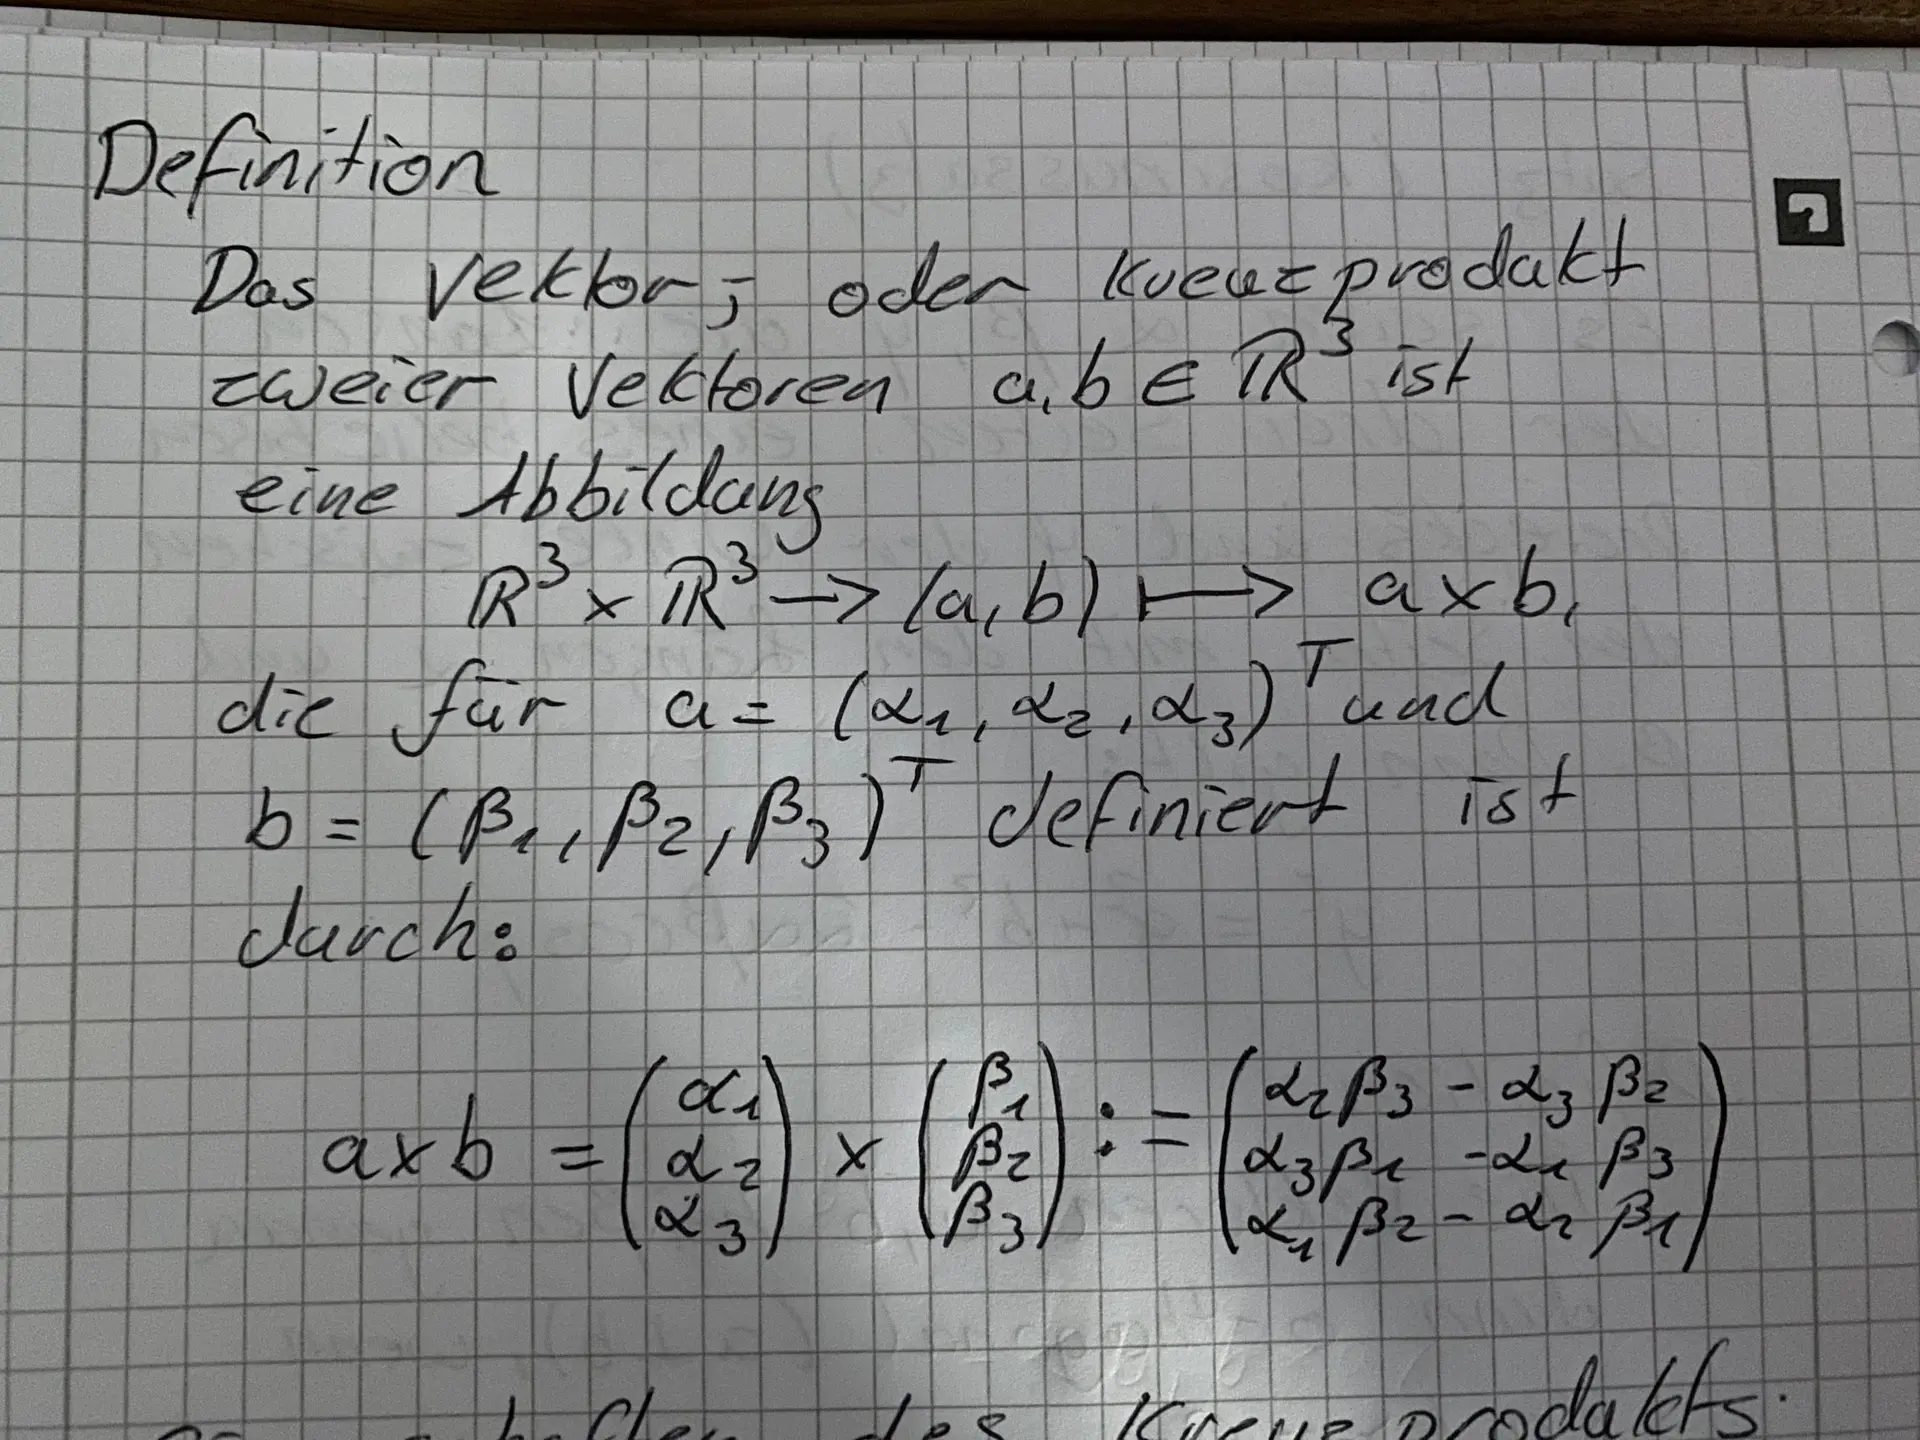 Definition
Das Vektor-, oder Kreuzprodukt
zweier Vektoren a, b ∈ ℝ³ ist
eine Abbildung
ℝ³ × ℝ³ → (a, b) ↦ a × b,
die für a = (α₁, α₂, α₃)ᵀ und
b = (β₁, β₂, β₃)ᵀ definiert ist
durch:
a × b = (α₁ α₂ α₃) × (β₁ β₂ β₃) := (α₂β₃ - α₃β₂ α₃β₁ - α₁β₃ α₁β₂ - α₂β₁)
des Kreuzprodukts